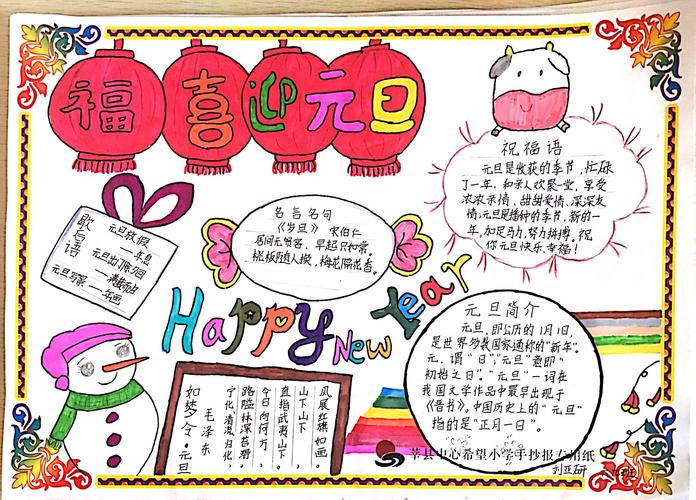 福喜迎元旦
祝福语
元旦是收获的季节,忙碌
了一年,和亲人欢聚一堂,享受
浓浓亲情、甜甜爱情、深深友
情;元旦是播种的季节,新的一
年,加足马力,努力拼搏。祝
你元旦快乐、幸福!
名言名句
《岁旦》 宋伯仁
居间无贺客,早起只如常。
桃板随人换,梅花隔
歇后语
元旦放假
元旦出门
元旦
Happy New Year
元旦简介
元旦,即公历的1月1日,
是世界多数国家通称的“新年”。
元,谓“日”,“元旦”意即“
初始之日”。“元旦”一词在
我国文学作品中最早出现于
《晋书》。中国历史上的“元旦”
指的是“正月一日”。
如梦令·元旦
毛泽东
宁化、清流、归化,
路隘林深苔滑。
今日向何方,
直指武夷山下。
山下山下,
风展红旗如画。
莘县中心希望小学手抄报专用纸
刘亚研